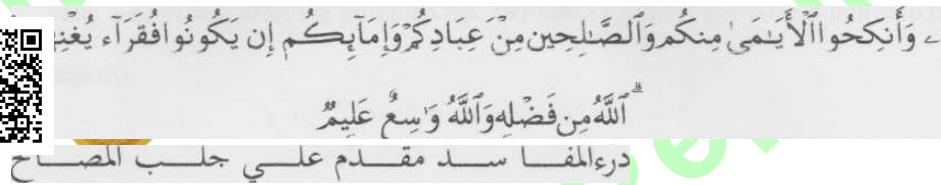 وَأَنكِحُوا۟ ٱلْأَيَـٰمَىٰ مِنكُمْ وَٱلصَّـٰلِحِينَ مِنْ عِبَادِكُمْ وَإِمَآئِكُمْ إِن يَكُونُوا۟ فُقَرَآءَ
ٱللَّهُ مِن فَضْلِهِۦ وَٱللَّهُ وَٰسِعٌ عَلِيمٌ
درءالمفاسد مقدم علي جلب المصاح